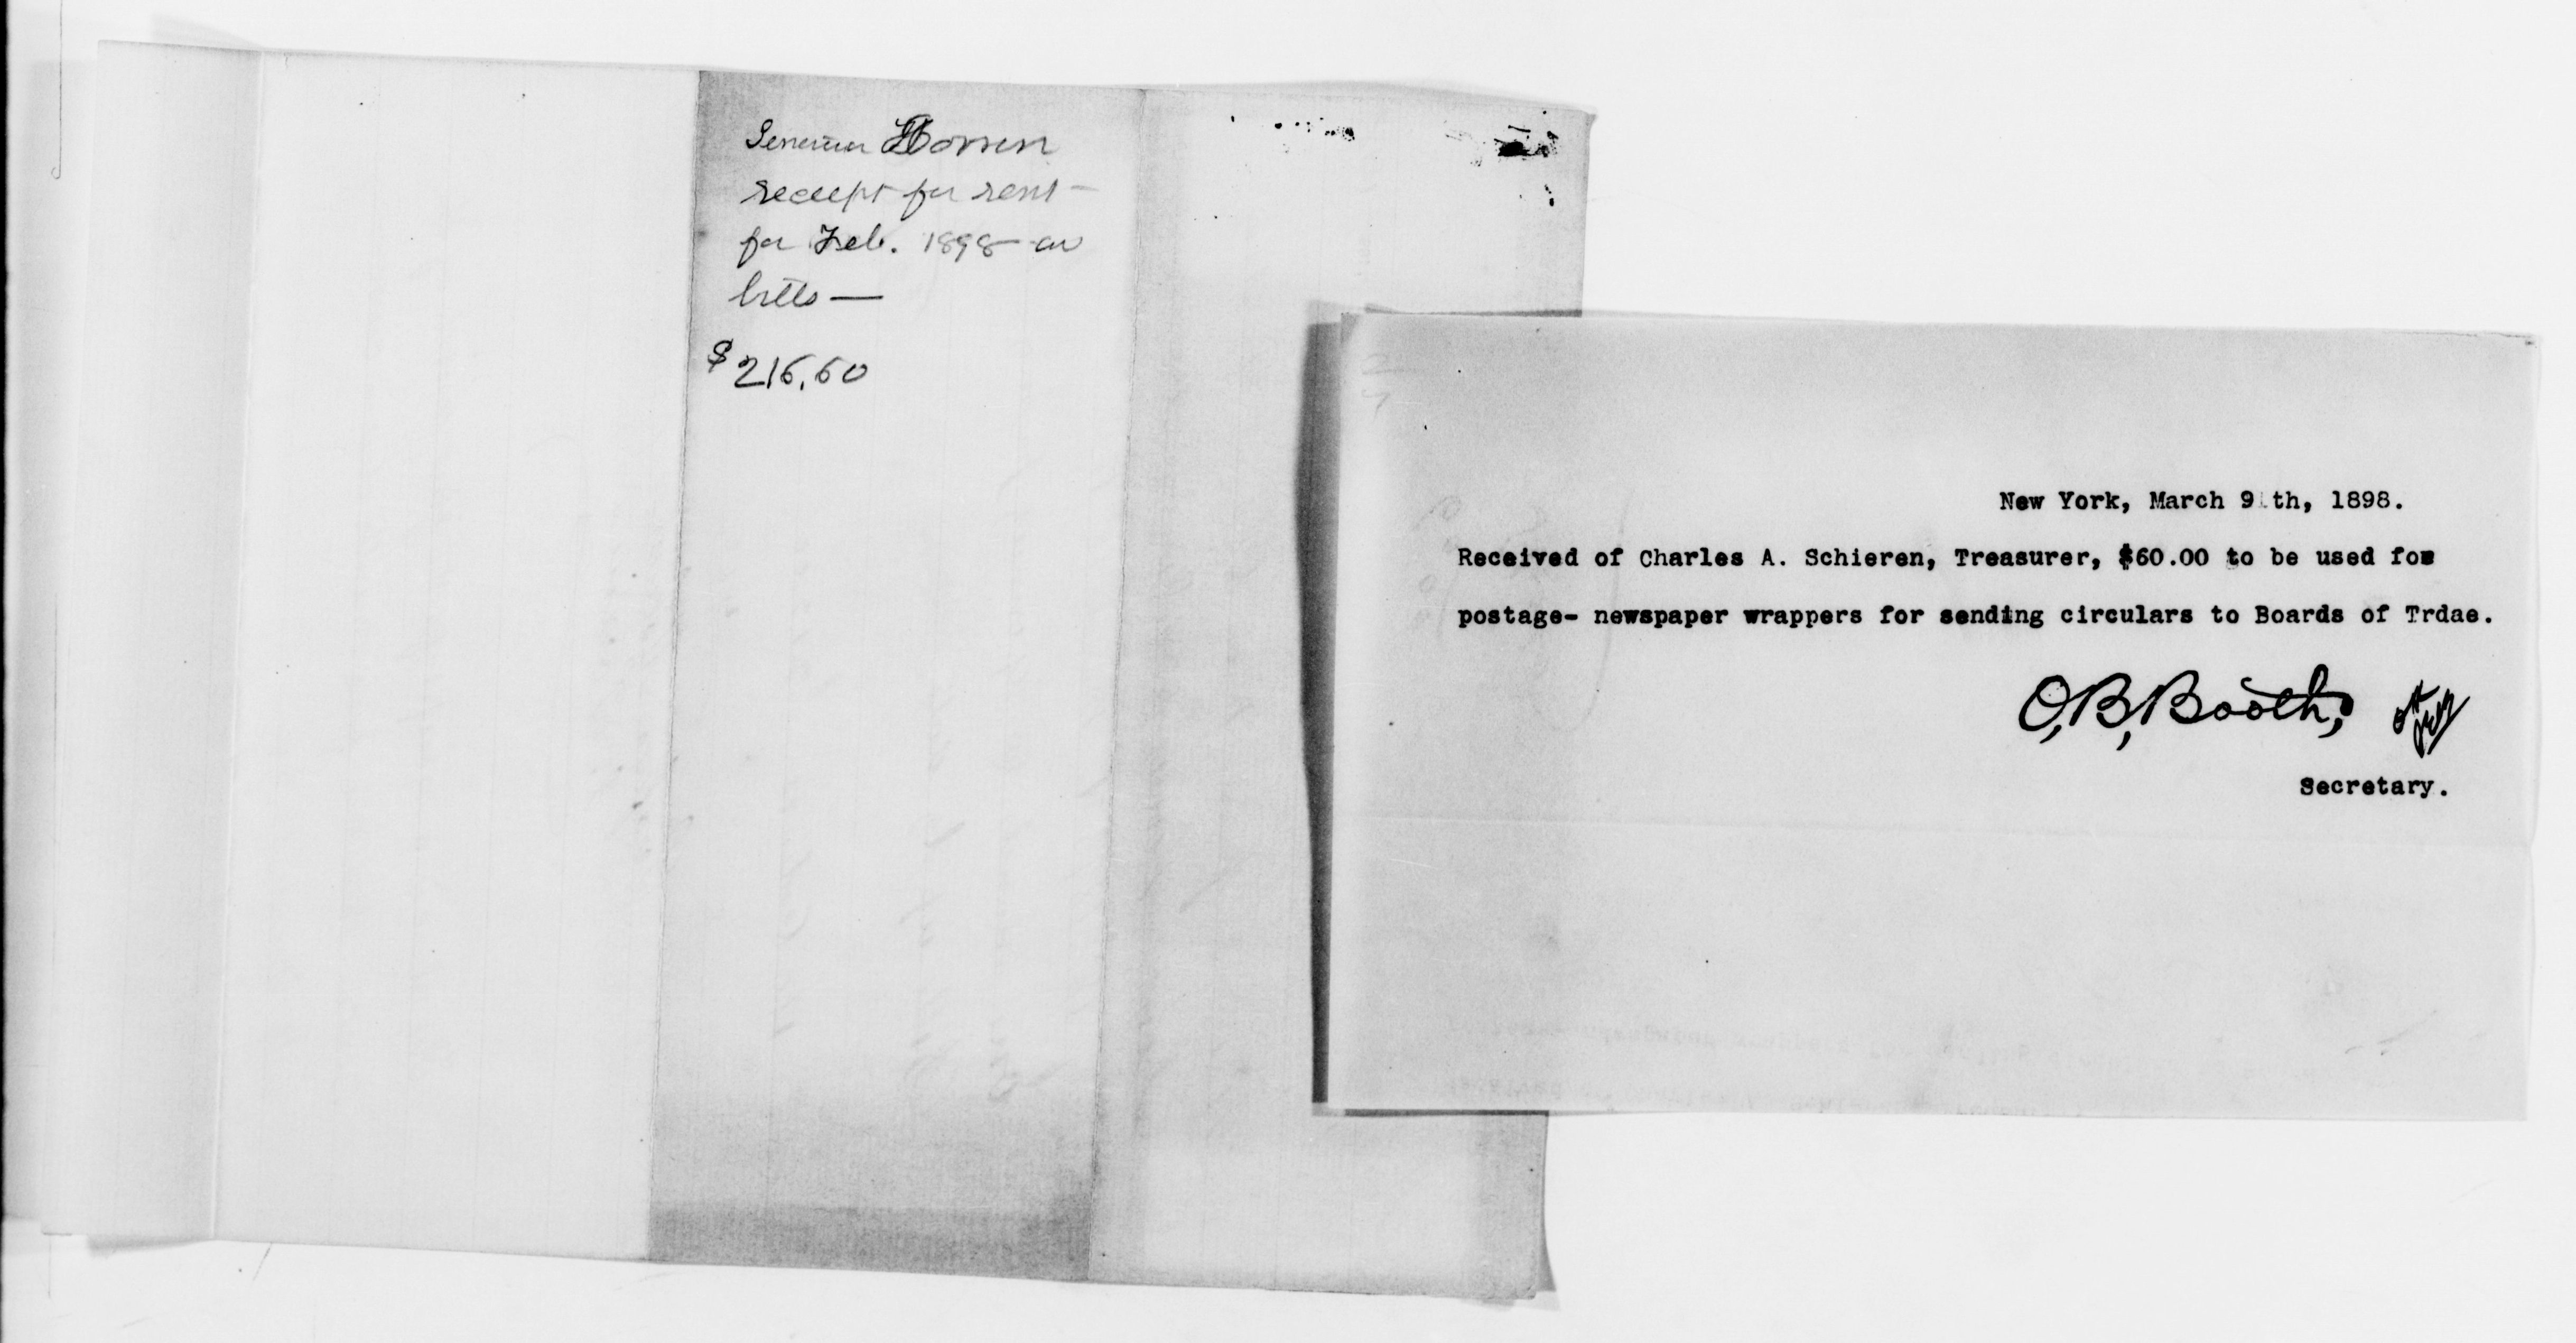 receipt for rent -
for Feb. 1898 an
bills —
$216.60
New York, March 9 th, 1898.
Received of Charles A. Schieren, Treasurer, $60.00 to be used for
postage- newspaper wrappers for sending circulars to Boards of Trdae.
O, B, Booth,
Secretary.